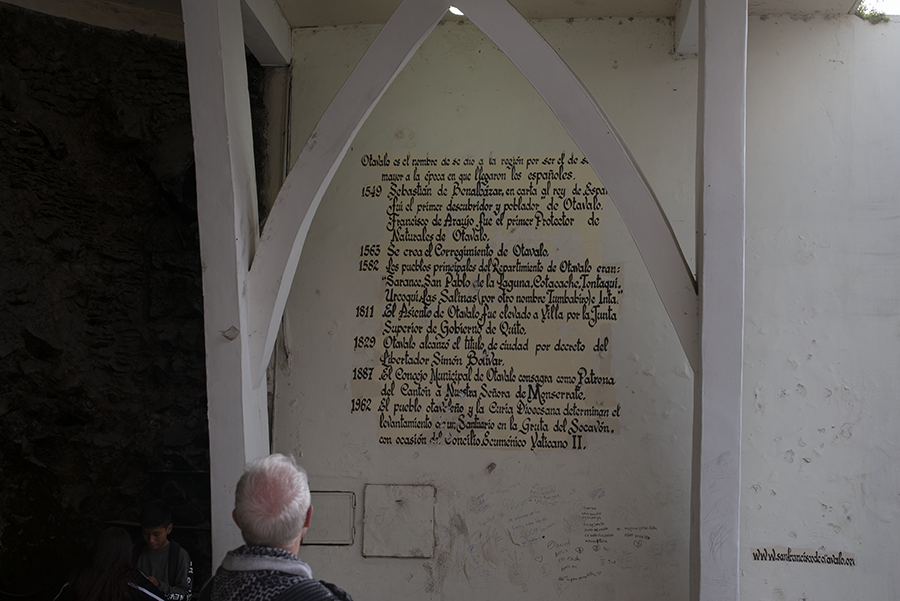 Otavalo es el nombre de se dio a la región por ser el de
mayor a la época en que llegaron los españoles.
1549 Sebastián de Benalcázar, en carta al rey de
fui el primer descubridor y poblador de Otavalo.
Francisco de Araujo fue el primer Protector de
Naturales de Otavalo.
1563 Se crea el Corregimiento de Otavalo.
1582 Los pueblos principales del Repartimiento de Otavalo eran:
"Sarance, San Pablo de la Laguna, Cotacache, Tontaqui,
Urcoqui, Las Salinas (por otro nombre Tumbabiro) e Inta.
1811 El Asiento de Otavalo fue elevado a Villa por la Junta
Superior de Gobierno de Quito.
1829 Otavalo alcanzó el título de ciudad por decreto del
Libertador Simón Bolívar.
1887 El Concejo Municipal de Otavalo consagra como Patrona
del Cantón a Nuestra Señora de Monserrate.
1962 El pueblo otavaleño y la Curia Diocesana determinan el
levantamiento de un Santuario en la Gruta del Socavón.
con ocasión del Concilio Ecuménico Vaticano II.
www.sanfranciscodeotavalo.